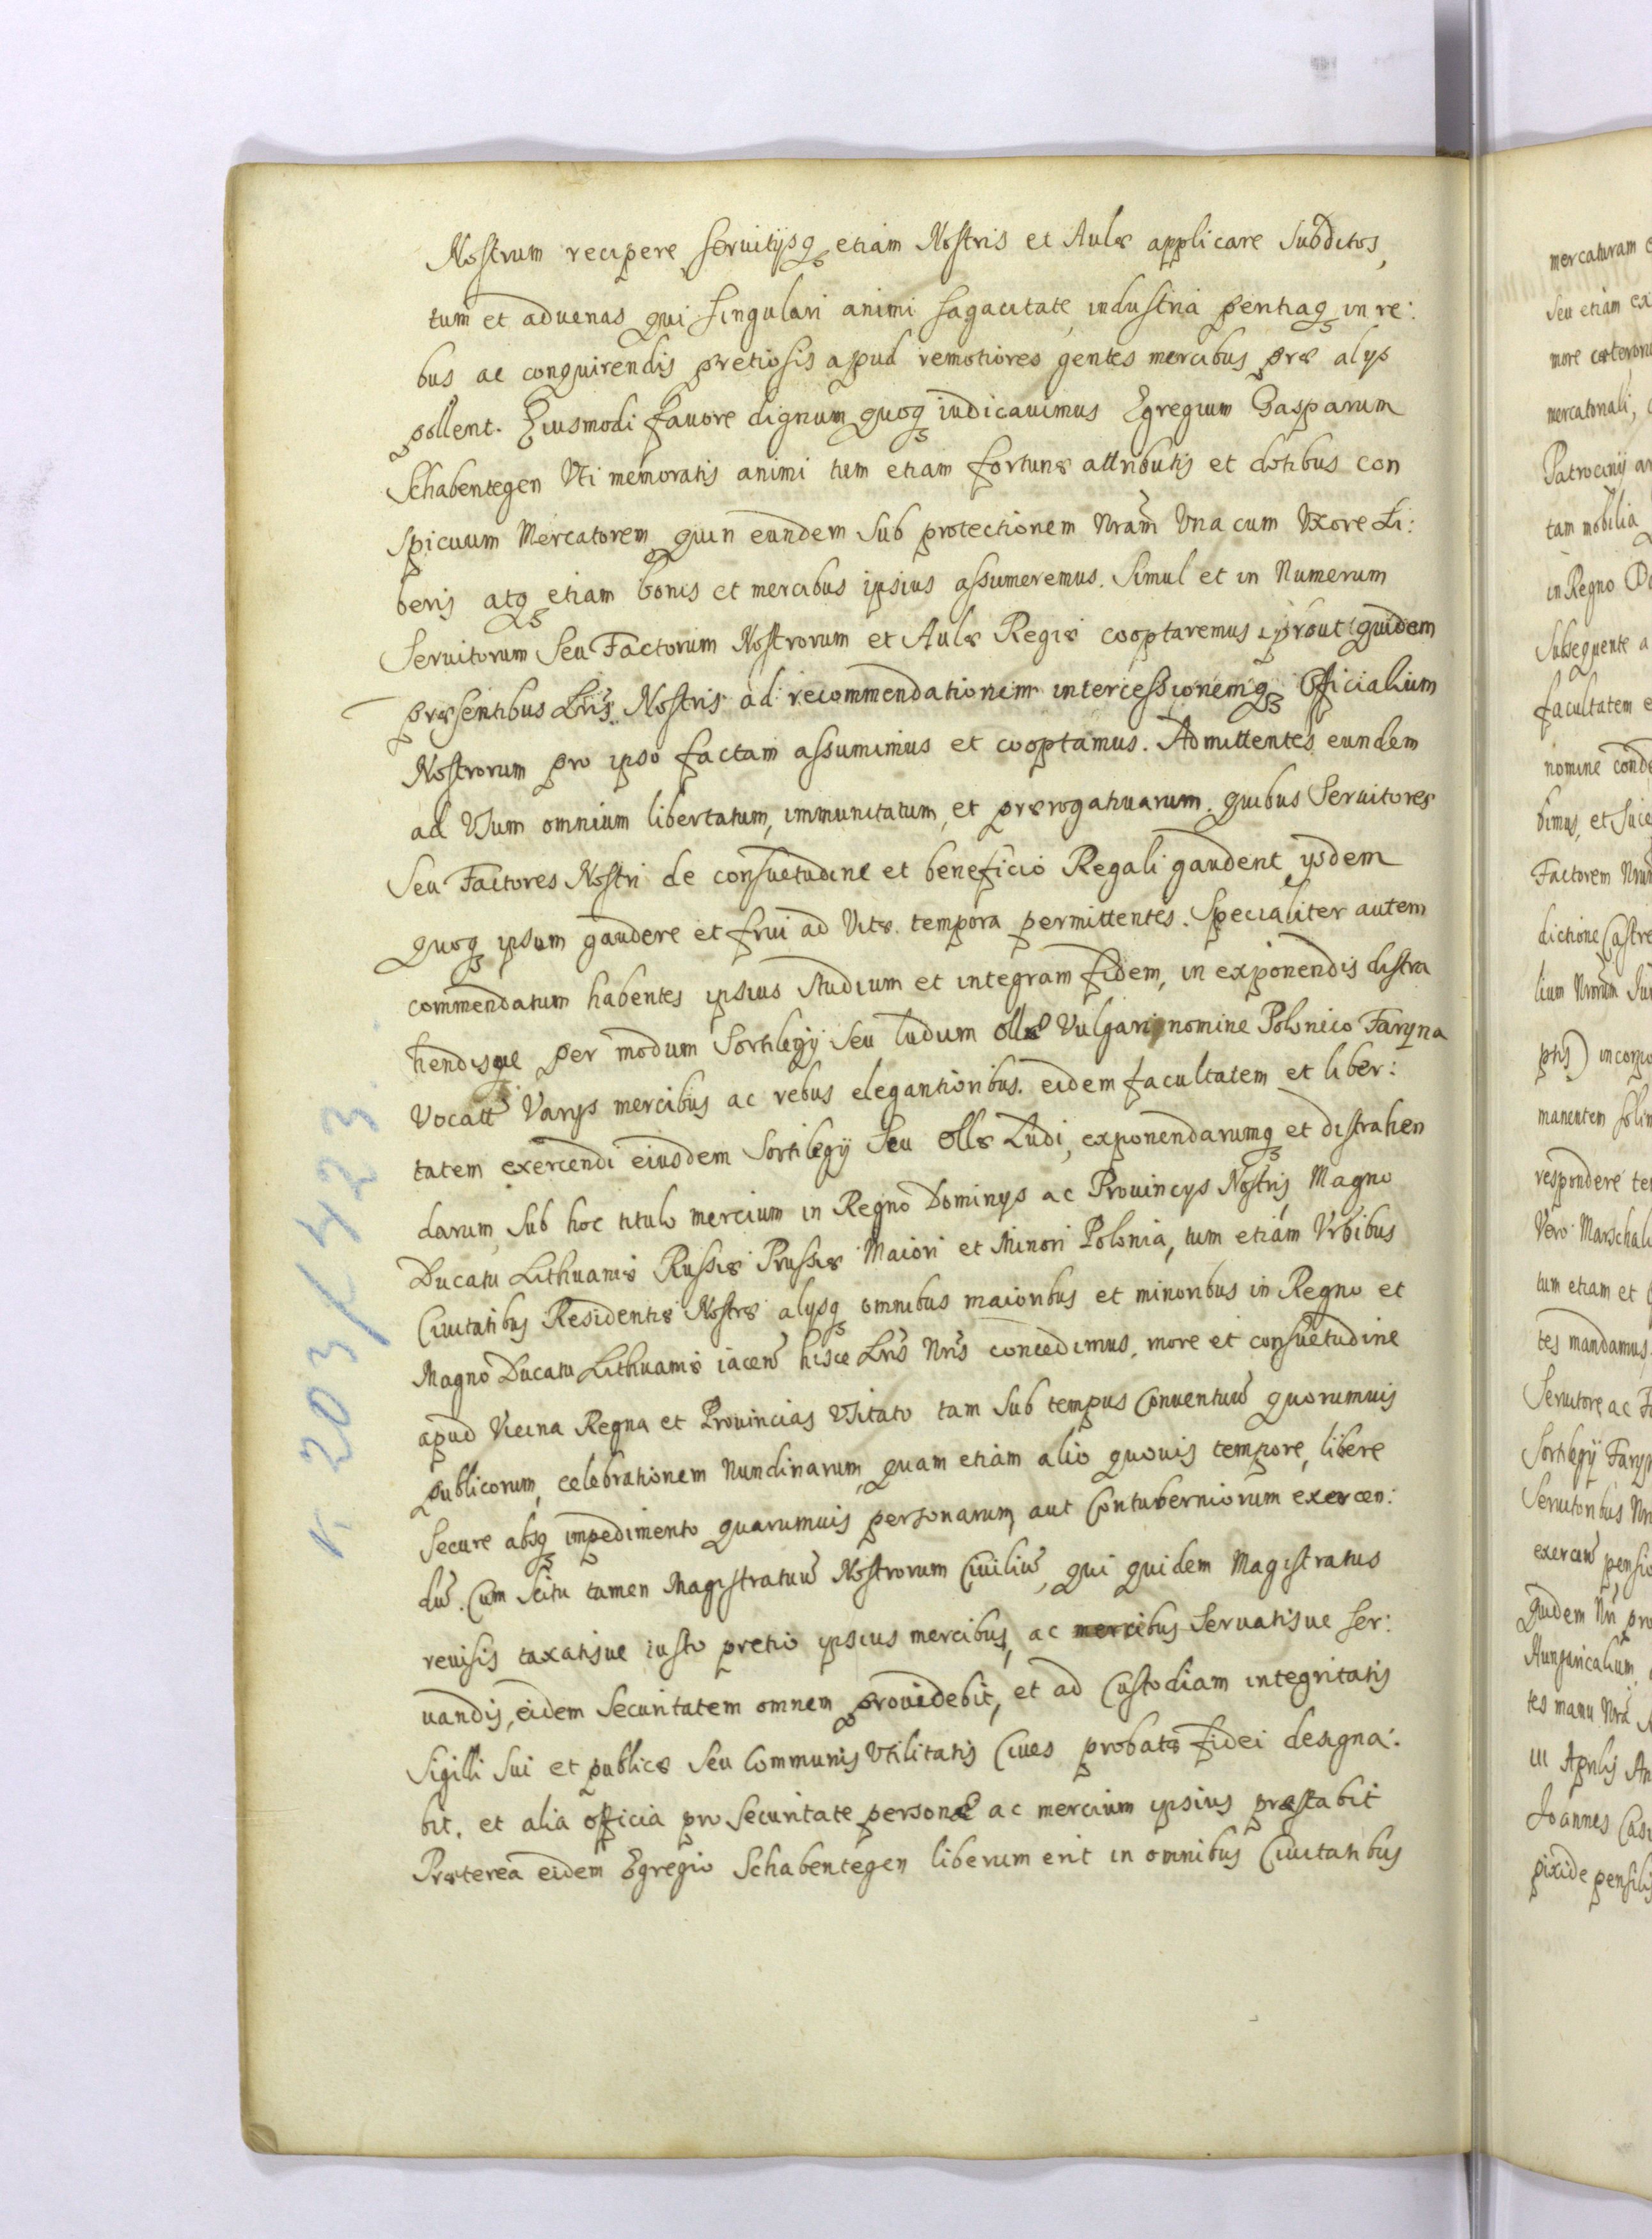 Nostrum recipere seruitijsq3 etiam Nostris et Aulæ applicare Subditos,
tum et aduenas qui singulari animi sagacitate industria peritiaq3 in re:
bus ac conquirendis pretiosis apud remotiores gentes mercibus præ alys
pollent. Eiusmodi fauore dignum quoq3 iudicauimus Egregium Gasparum
Schabentegen Vti memoratis animi tum etiam fortunæ attributis et dotibus con
spicuum Mercatorem quin eundem Sub protectionem Nram̃ Vna cum Vxore Li:
beris atq3 etiam bonis et mercibus ipsius assumeremus. Simul et in Numerum
Seruitorum Seu Factorum Nostrorum et Aulæ Regiæ cooptaremus, prout quidem
præsentibus Lrīs Nostris ad recommendationem intercessionemq3 Officialium
Nostrorum pro ipso factam assumimus et cooptamus. Admittentes eundem
ad Vsum omnium libertatum, immunitatum, et prærogatiuarum. quibus Seruitores
Seu Factores Nostri de consuetudine et beneficio Regali gaudent ysdem
quoq3 ipsum gaudere et frui ad Vitæ tempora permittentes. Specialiter autem
commendatum habentes ipsius studium et integram fidem, in exponendis distra
hendisque per modum Sortilegij Seu Ludum ollæ Vulgari nomine Polonico Faryna
Vocatt Varys mercibus ac rebus elegantioribus. eidem facultatem et liber:
tatem exercendi eiusdem Sortilegij Seu Ollæ Ludi, exponendarumq3 et distrahen
darum Sub hoc titulo mercium in Regno Dominys ac Prouincys Nostris, Magno
Ducatu Lithuaniæ Russiæ Prussiæ Maiori et Minori Polonia, tum etiam Vrbibus
Ciuitatibus Residentiæ Nostræ alysq3 omnibus maioribus et minoribus in Regno et
Magno Ducatu Lithuaniæ iaceñ hisce Lrīs Nrīs concedimus. more et consuetudine
apud Vicina Regna et Prouincias Vsitato tam Sub tempus Conuentuũ quorumuis
publicorum, celebrationem Nundinarum, quam etiam alio quouis tempore, libere
Secure absq3 impedimento quarumuis personarum, aut Contuberniorum exercen:
dũ. Cum Scitu tamen Magistratuũ Nostrorum Ciuiliũ, qui quidem Magistratus
reuisis taxatisue iusto pretio ipsius mercibus, ac mercibus Seruatisue ser:
uandis, eidem Securitatem omnem prouidebit, et ad Custodiam integritatis
Sigilli Sui et publicæ Seu Communis Vtilitatis Ciues probatæ fidei designa:
bit. et alia officia pro Securitate personæ ac mercium ipsius præstabit
Præterea eidem Egregio Schabentegen liberum erit in omnibus Ciuitatibus
203/423
mercaturam
Seu etiam ex
more cæteroru
mercatoriali,
Patrocinij
tam mobilia
in Regno
Subsequente a
facultatem e
nomine
bimus, et
Factorem
dictione Castre
lium Nrorum
manentem
respondere
Vero Marschali
tum etiam et
tes mandamus.
Seruitore ac
Sortilegij
Seruitoribus
exerceñ pensio
quidem
Hungaricalium
tes manu Nra
III Aprilis An
Joannes Casi
pixide pensilis